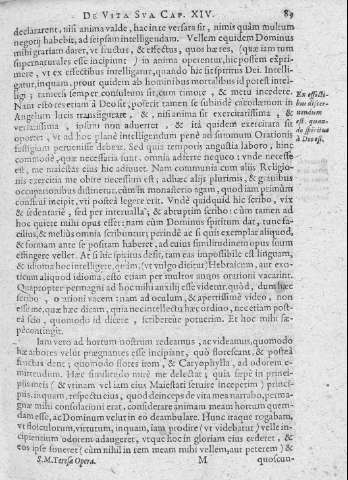 DE VITA SVA CAP. XIV. 89
declararent, nisi anima valde, hac in te versata sit, nimis quàm multum
negotij habebit, ad ipsam intelligendam. Vellem equidem Dominus
mihi gratiam daret, vt fructus, & effectus, quos hæ res, (quæ iam tum
supernaturales esse incipiunt) in anima operentur, hîc possem expri-
mere, vt ex effectibus intelligatur, quando hic sit spiritus Dei. Intelli-
gatur, inquam, prout quidem ab hominibus mortalibus id potest intel-
ligi; tametsi semper consultum sit, cum timore, & metu incedere.
Nam etsi res etiam à Deo sit, poterit tamen se subinde cacodæmon in
Angelum lucis transfigurare, & , nisi anima sit exercitatissima , &
versatissima , ipsum non advertet , & ita quidem exercitata sit
oportet, vt ad hoc planè intelligendum penè ad summum Orationis
fastigium pervenisse debeat. Sed quia temporis angustia laboro , hinc
commodè, quæ necessaria sunt, omnia adferre nequeo: vnde necesse
est, me maiestas eius hic adiuvet. Nam communia cum alijs Religio-
nis exercitia me obire necessum est; adhæc alijs plurimis, & gravibus
occupationibus distineor, cùm in monasterio agam, quod iam primùm
constitui incipit, vti postea legere erit. Vnde quidquid hic scribo, vix
& sedentariè , sed per intervalla, & abruptim scribo: cùm tamen ad
hoc quiete mihi opus esset: nam cùm Dominus spiritum dat, tum fa-
ciliùs, & meliùs omnia scribuntur; perinde ac si quis exemplar aliquod,
& formam ante se positam haberet, ad cuius similitudinem opus suum
effingere vellet. At si hic spiritus desit, tam eas impossibile est linguam,
& idioma hoc intelligere, &c.
cum aliquod idioma, etsi etiam per multos annos orationi vacarint.
Quapropter permagni ad hoc mihi auxilij esse videtur, quòd, dum hæc
scribo , orationi vacem: nam ad oculum, & apertissimè video , non
esse me, quæ hæc dicam, quia nec intellectu hæc ordino, nec etiam post-
ea scio , quomodo id dicere , scribereve potuerim. Et hoc mihi sæ-
pè contingit.
Iam vero ad hortum nostrum redeamus, ac videamus, quomodo
hæ arbores velut prægnantes esse incipiant, quò florescant, & posteà
fructus dent; quomodo flores item, & Caryophylla, ad odorem e-
mittendum. Hæc similitudo mirè me delectat; quia sæpè in princi-
pijs meis ( & vtinam vel iam eius Maiestati servire inceperim ) princi-
pijs, inquam, respectu eius, quod deinceps de vita mea narrabo, perma-
gnæ mihi consolationi erat, considerare animam meam hortum quen-
dam esse, ac Dominum velut in eo deambulare. Hunc itaque rogabam,
vt flosculorum, virtutum, inquam, iam prodire (vt videbatur) velle in-
cipientium odorem adaugeret, vtque hoc in gloriam eius cederet, &
eos ipse foveret (cùm nihil in rem meam mihi vellem, aut peterem) &
S. M. Teresæ Opera. M quoscun-
Ex effecti-
bus discer-
nendum
est, quan-
do spiritus
à Deo sit.